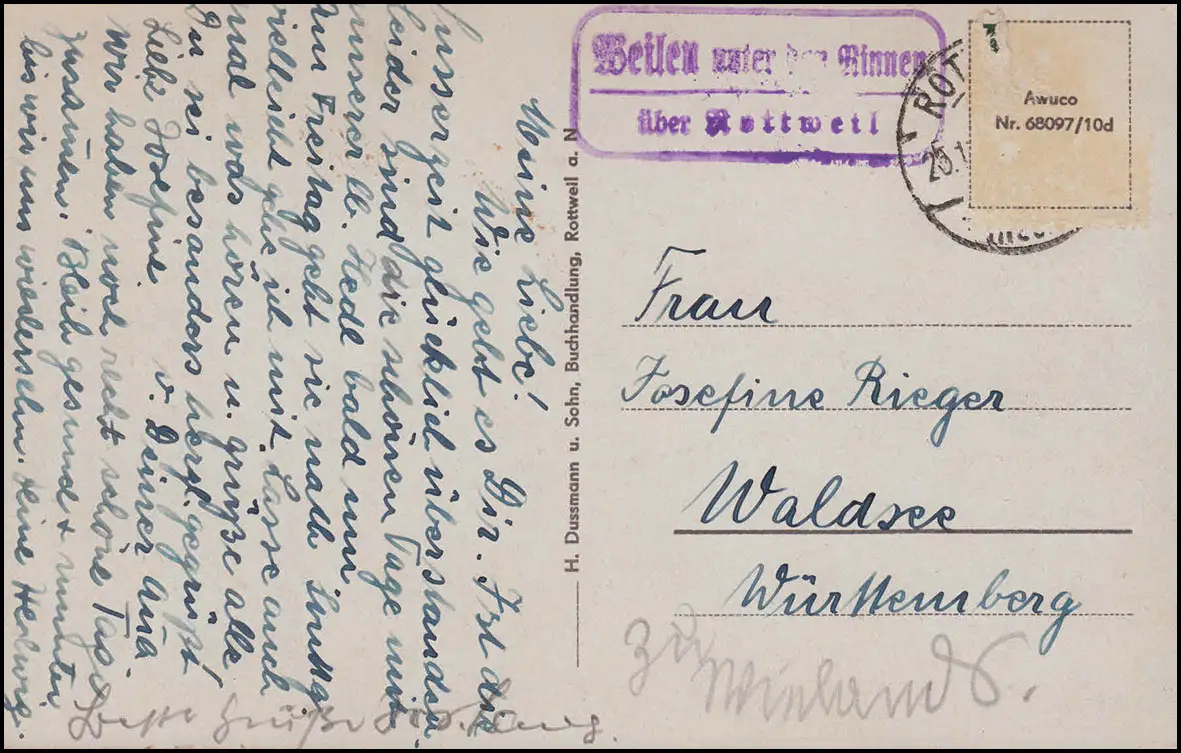 Meine Liebe!
Wie geht es Dir. Ist das
Unserzeit glücklich überstanden
leider sind die schönen Tage mit
unserer lb. Hede bald um
am Freitag geht sie nach
vielleicht gehe ich mit. Lasse auch
mal was hören u. grüße alle
Du sei besonders herzl. gegrüßt
v. Deiner Anna
Liebe Josefine
Wir haben noch recht schöne Tage
zusammen. Bleib gesund & munter
bis wir uns wiedersehn. Deine Hedwig.
Beste Grüße
H. Dussmann u. Sohn, Buchhandlung, Rottweil a. N
Weilen unter den Rinnen
über Rottweil
ROT
25.1
Awuco
Nr. 68097/10d
Frau
Josefine Rieger
Waldsee
Württemberg
zu
Wieland